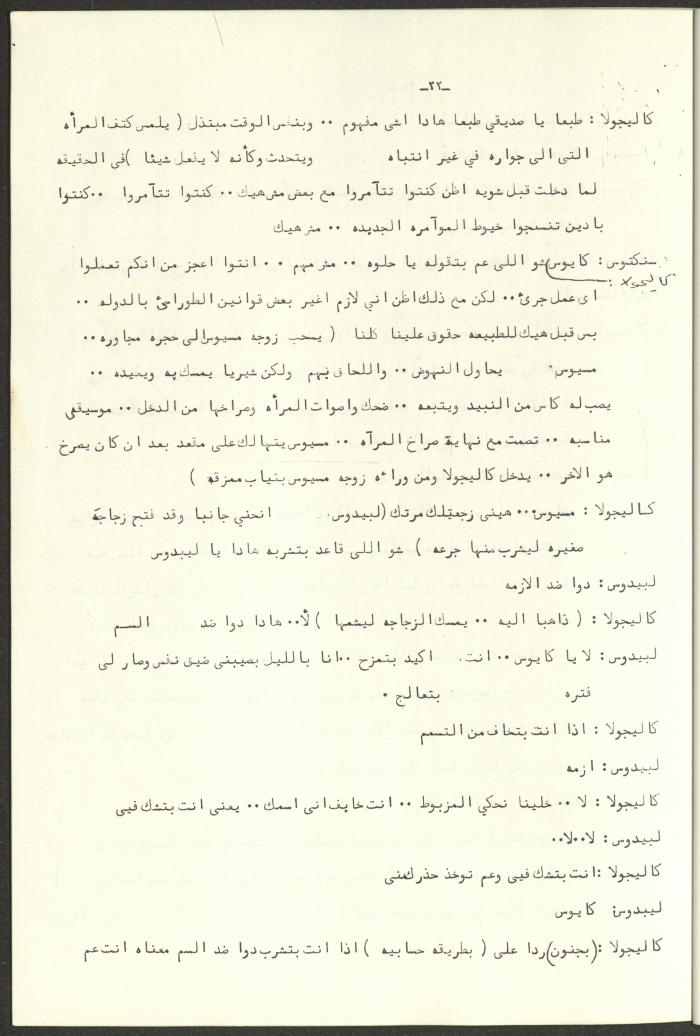 ـ٢٢ـ
كاليجولا : طبعا يا صديقي طبعا هادا اشى مفهوم ٠٠ وبنفس الوقت مبتذل ( يلمس كتف المرأه
التى الى جواره في غير انتباه ويتحدث وكأنه لا يفعل شيئا ) فى الحقيقه
لما دخلت قبل شويه اظن كنتوا تتآمروا مع بعض مش هيك ٠٠ كنتوا تتآمروا ٠٠ كنتوا
بادين تنسجوا خيوط الموآمره الجديده ٠٠ مش هيك
سنكتوس : كايوس
كاليجولا : شو اللى عم بتقوله يا حلوه ٠٠ مش مهم ٠٠ انتوا اعجز من انكم تعملوا
اى عمل جرئ ٠٠ لكن مع ذلك اظن اني لازم اغير بعض قوانين الطوارئ بالدوله ٠٠
بس قبل هيك للطبيعه حقوق علينا كلنا ( يسحب زوجه مسيوس الى حجره مجاوره ٠٠
مسيوس يحاول النهوض ٠٠ واللحاق بهم ولكن شيريا يمسك به ويعيده ٠٠
يصب له كاس من النبيد ويتبعه ٠٠ ضحك واصوات المرأه وصراخها من الدخل ٠٠ موسيقى
مناسبه ٠٠ تصمت مع نهاية صراخ المرآه ٠٠ مسيوس يتهالك على مقعد بعد ان كان يصرخ
هو الاخر ٠٠ يدخل كاليجولا ومن وراءه زوجه مسيوس بثياب ممزقه )
كاليجولا : مسيوس ٠٠ هينى زجعتلك مرتك ( لبيدوس انحني جانبا وقد فتح زجاجة
صغيره ليشرب منها جرعه ) شو اللى قاعد بتشربه هادا يا ليبدوس
لبيدوس : دوا ضد الازمه
كاليجولا : ( ذاهبا اليه ٠٠ يمسك الزجاجه ليشمها ) لأ ٠٠ هادا دوا ضد السم
لبيدوس : لا يا كايوس ٠٠ انت اكيد بتمزح ٠٠ انا بالليل بصيبنى ضيق نفس وصار لى
فتره بتعالج ٠
كاليجولا : اذا انت بتخاف من التسمم
لبيدوس : ازمه
كاليجولا : لا ٠٠ خلينا نحكي المزبوط ٠٠ انت خايف انى اسمك ٠٠ يعنى انت بتشك فيى
لبيدوس : لا ٠٠ لا ٠٠
كاليجولا : انت بتشك فيى وعم توخذ حذرك منى
ليبدوس : كايوس
كاليجولا : ( بجنون ) ردا على ( بطريقه حسابيه ) اذا انت بتشرب دوا ضد السم معناه انت عم